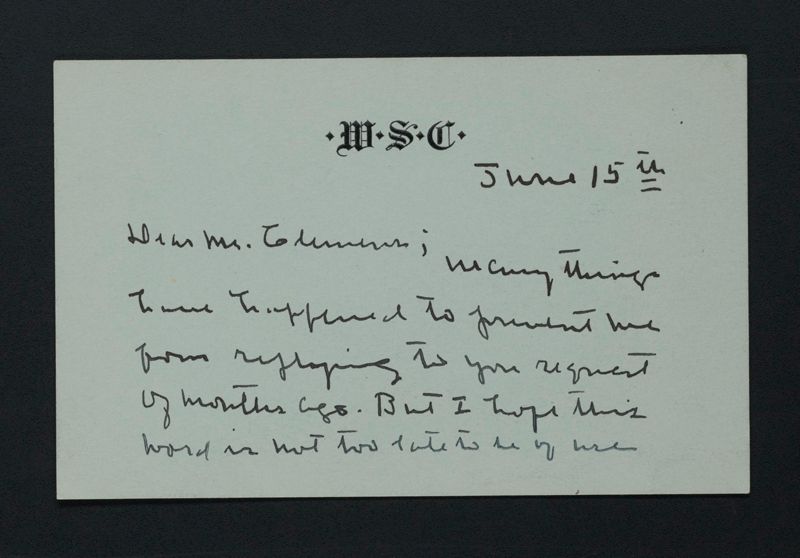 ·W·S·C·
June 15th
Dear Mr. Clemens;
many things
have happened to prevent me
from replying to you request
of months ago. But I hope this
word is not too late to be of use